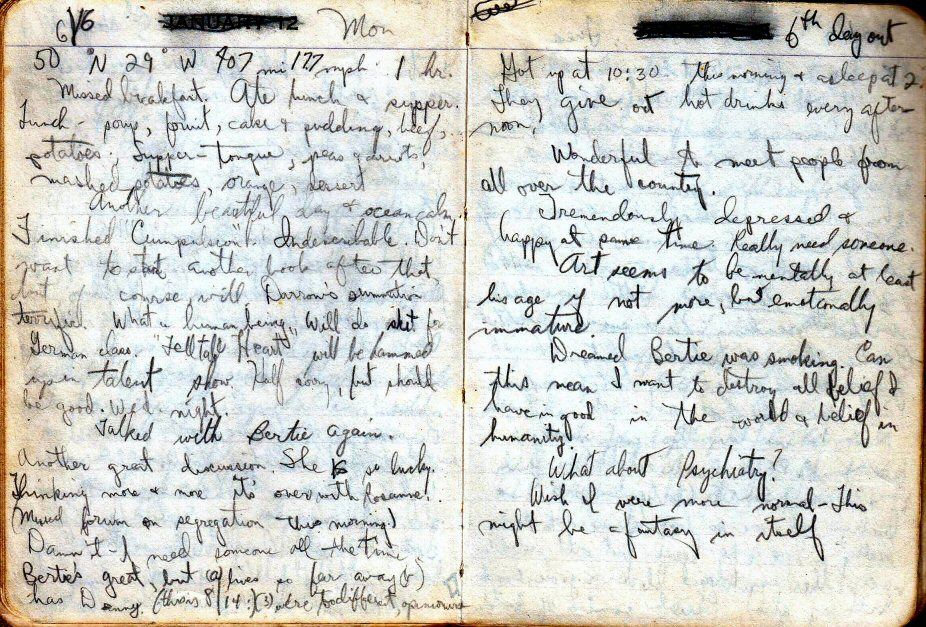 6/6 JANUARY 12 Mon
50 °N 29° W 407 mi 17 mph. 1 hr.
Missed breakfast. Ate lunch & supper.
Lunch - soup, fruit, cake & pudding, beef,
potatoes; Supper - tongue, peas & carrots,
mashed potatoes, orange, desert
Another beautiful day & ocean calm.
Finished "Cumpulsion". Indescribable. Don't
want to start another book after that,
but of course, will. Darrow's summation
terrific. What a human being. Will do skit for
German class. "Telltale Heart" will be hammed
up in talent show. Half corny, but should
be good. Wed. night.
Talked with Bertie again.
Another great discussion. She is so lucky.
Thinking more & more it's over with Rosanne.
(Missed forum on segregation this morning!)
Damn it - I need someone all the time
Bertie's great, but (a) lives so far away (b)
has Danny (this is 8/14:) (3) we're too different, opinionwise
6th day out
Got up at 10:30 this morning & asleep at 2.
They give out hot drinks every after-
noon.
Wonderful to meet people from
all over the country.
Tremendously depressed &
happy at same time. Really need someone.
Art seems to be mentally at least
his age if not more, but emotionally
immature
Dreamed Bertie was smoking. Can
this mean I want to destroy all belief I
have in good in the world & belief in
humanity?
What about Psychiatry?
Wish I were more normal - This
might be a fantasy in itself